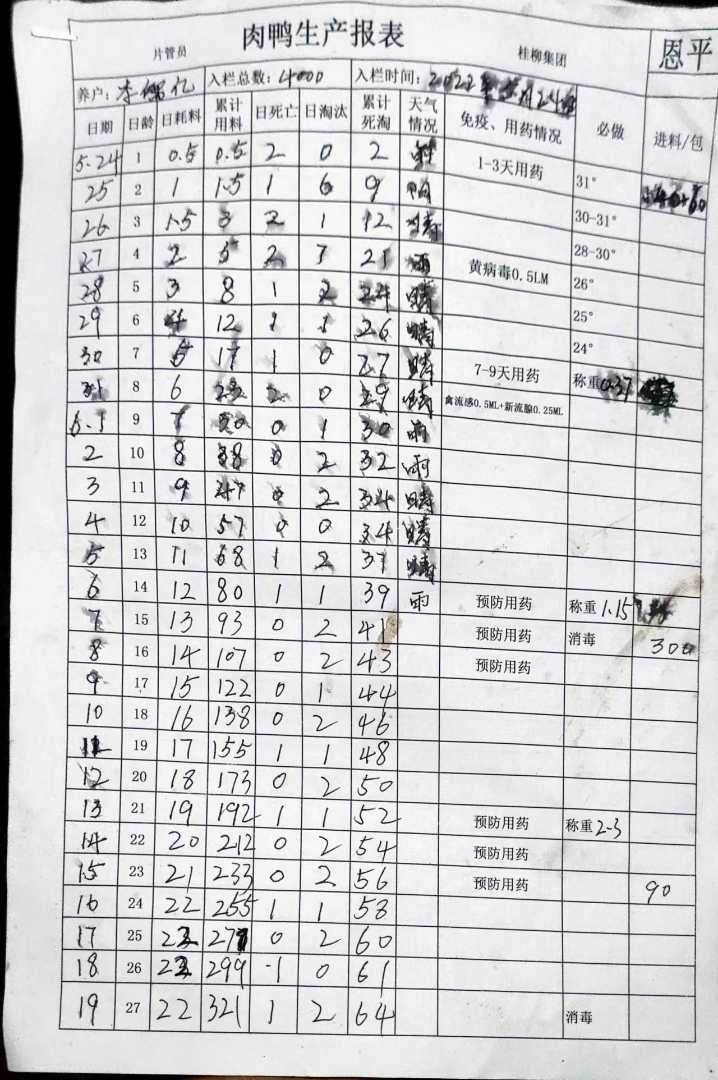 肉鸭生产报表
片管员 桂柳集团 恩平
养户: 李 亿 入栏总数: 4000 入栏时间: 2022年 24
日期 日龄 日耗料 累计用料 日死亡 日淘汰 累计死淘 天气情况 免疫、用药情况 必做 进料/包
5.24 1 0.5 0.5 2 0 2 1-3天用药
25 2 1 1.5 1 6 9 31°
26 3 1.5 3 2 1 12 晴 30-31°
27 4 2 5 2 7 21 雨 28-30°
28 5 3 8 1 2 24 晴 黄病毒0.5LM 26°
29 6 4 12 1 1 26 晴 25°
30 7 5 17 1 0 27 晴 24°
31 8 6 23 2 0 29 晴 7-9天用药 称重0.37
6.1 9 7 30 0 1 30 雨 禽流感0.5ML+新流腺0.25ML
2 10 8 38 0 2 32 雨
3 11 9 47 0 2 34 晴
4 12 10 57 0 0 34 晴
5 13 11 68 1 2 37 晴
6 14 12 80 1 1 39 雨 预防用药 称重1.15
7 15 13 93 0 2 41 预防用药 消毒 300
8 16 14 107 0 2 43 预防用药
9 17 15 122 0 1 44
10 18 16 138 0 2 46
11 19 17 155 1 1 48
12 20 18 173 0 2 50
13 21 19 192 1 1 52 预防用药 称重2-3
14 22 20 212 0 2 54 预防用药
15 23 21 233 0 2 56 预防用药 90
16 24 22 255 1 1 58
17 25 22 277 0 2 60
18 26 22 299 1 0 61
19 27 22 321 1 2 64 消毒